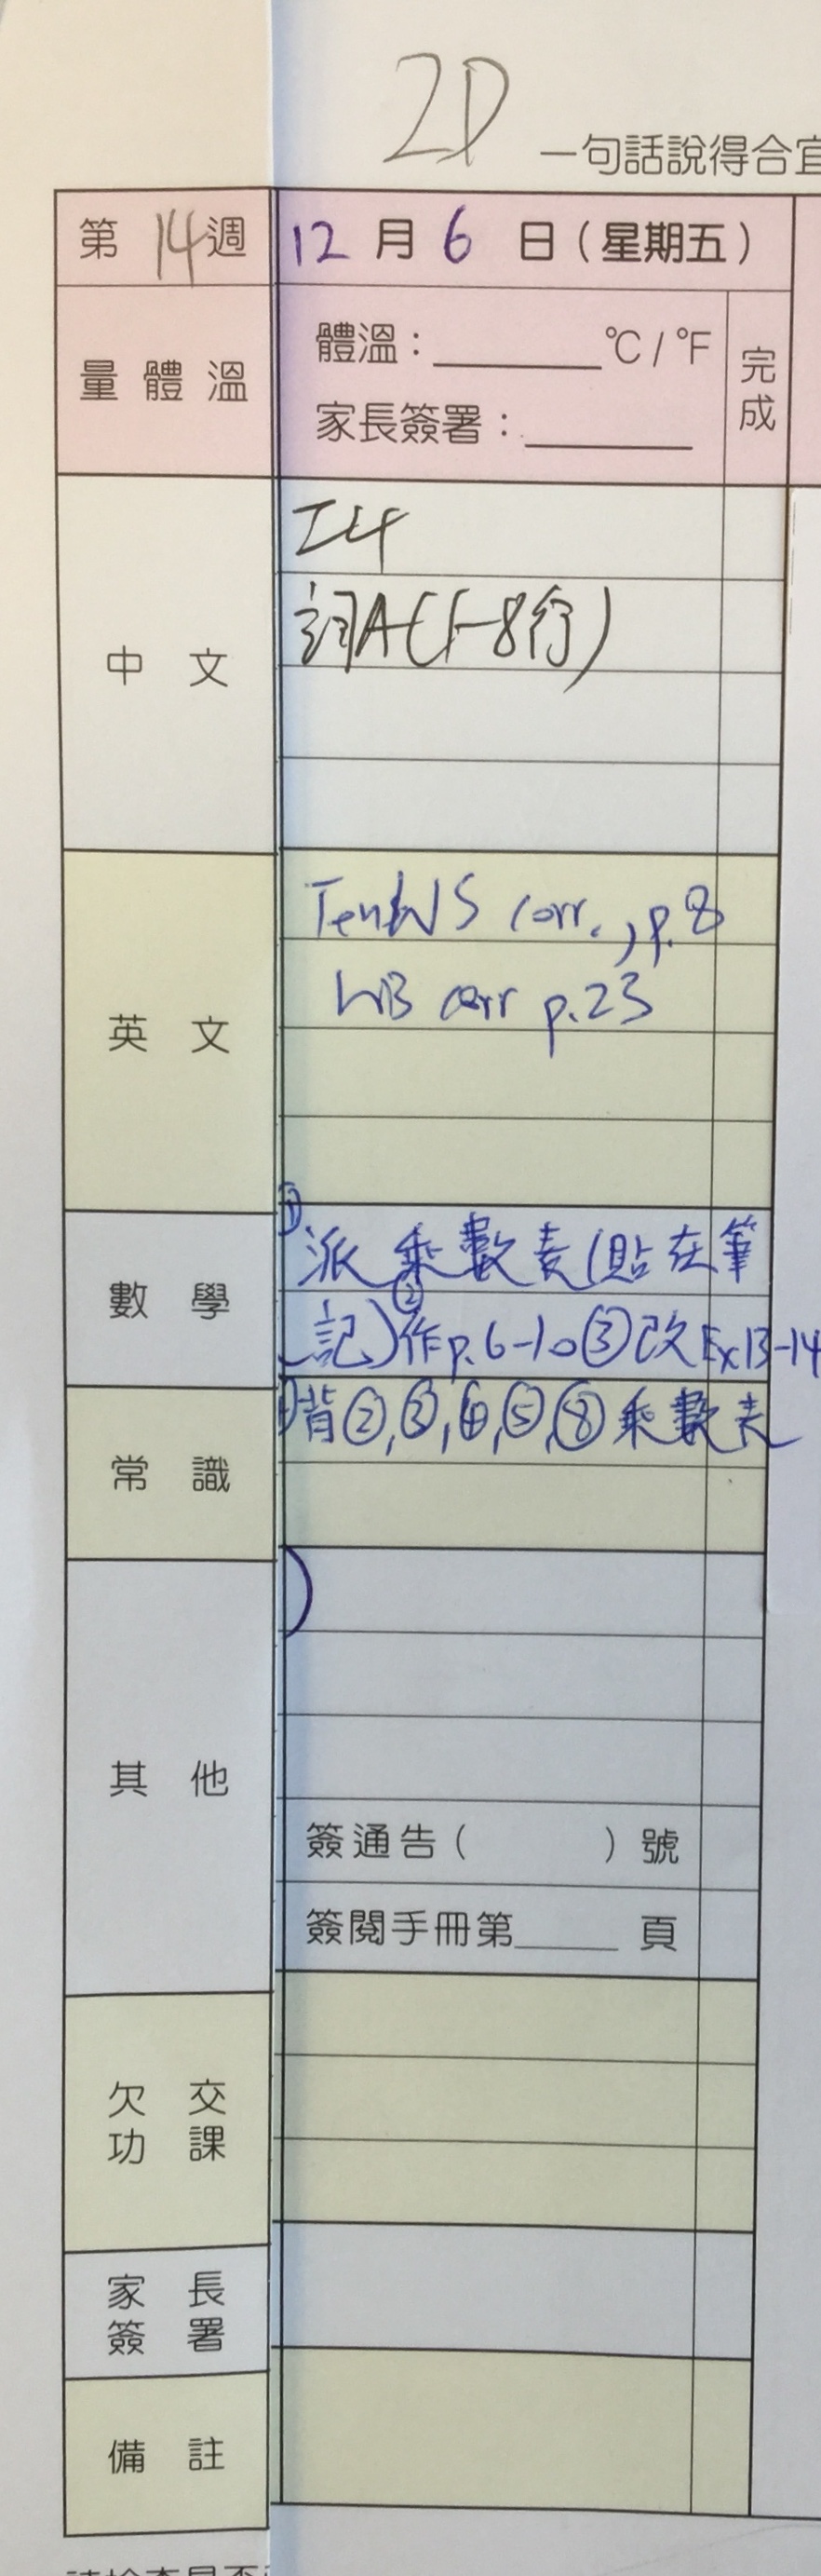 2D
一句話說得合宜
第14週
12月6日(星期五)
量體溫
體溫：______°C / °F
家長簽署：______
完成
中文
工4
詞A(1-8行)
英文
WS corr., p.8
WB corr p.23
數學
①派乘數表(貼在筆
記)②作p.6-10③改Ex13-14
常識
背②,③,④,⑤,⑧乘數表
其他
簽通告( )號
簽閱手冊第____頁
欠交
功課
家長
簽署
備註